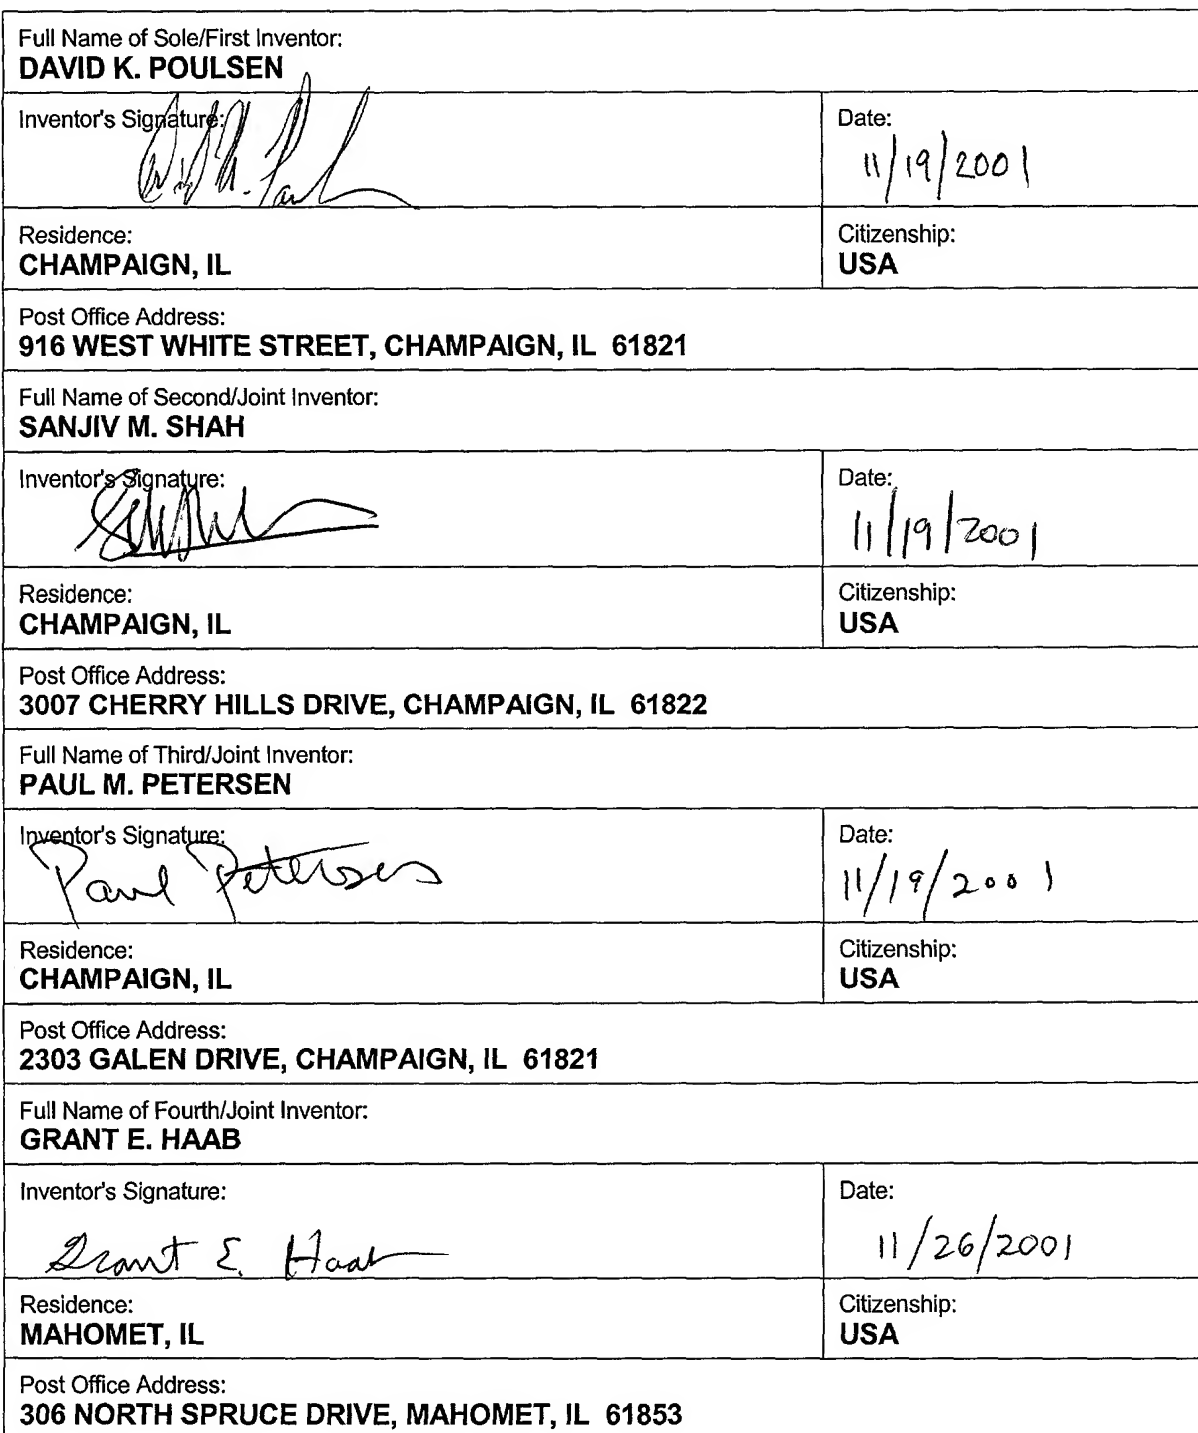 Full Name of Sole/First Inventor:
DAVID K. POULSEN
Inventor's Signature:
Date:
11/19/2001
Residence:
CHAMPAIGN, IL
Citizenship:
USA
Post Office Address:
916 WEST WHITE STREET, CHAMPAIGN, IL 61821
Full Name of Second/Joint Inventor:
SANJIV M. SHAH
Inventor's Signature:
Date:
11/19/2001
Residence:
CHAMPAIGN, IL
Citizenship:
USA
Post Office Address:
3007 CHERRY HILLS DRIVE, CHAMPAIGN, IL 61822
Full Name of Third/Joint Inventor:
PAUL M. PETERSEN
Inventor's Signature:
Paul Petersen
Date:
11/19/2001
Residence:
CHAMPAIGN, IL
Citizenship:
USA
Post Office Address:
2303 GALEN DRIVE, CHAMPAIGN, IL 61821
Full Name of Fourth/Joint Inventor:
GRANT E. HAAB
Inventor's Signature:
Grant E. Haab
Date:
11/26/2001
Residence:
MAHOMET, IL
Citizenship:
USA
Post Office Address:
306 NORTH SPRUCE DRIVE, MAHOMET, IL 61853